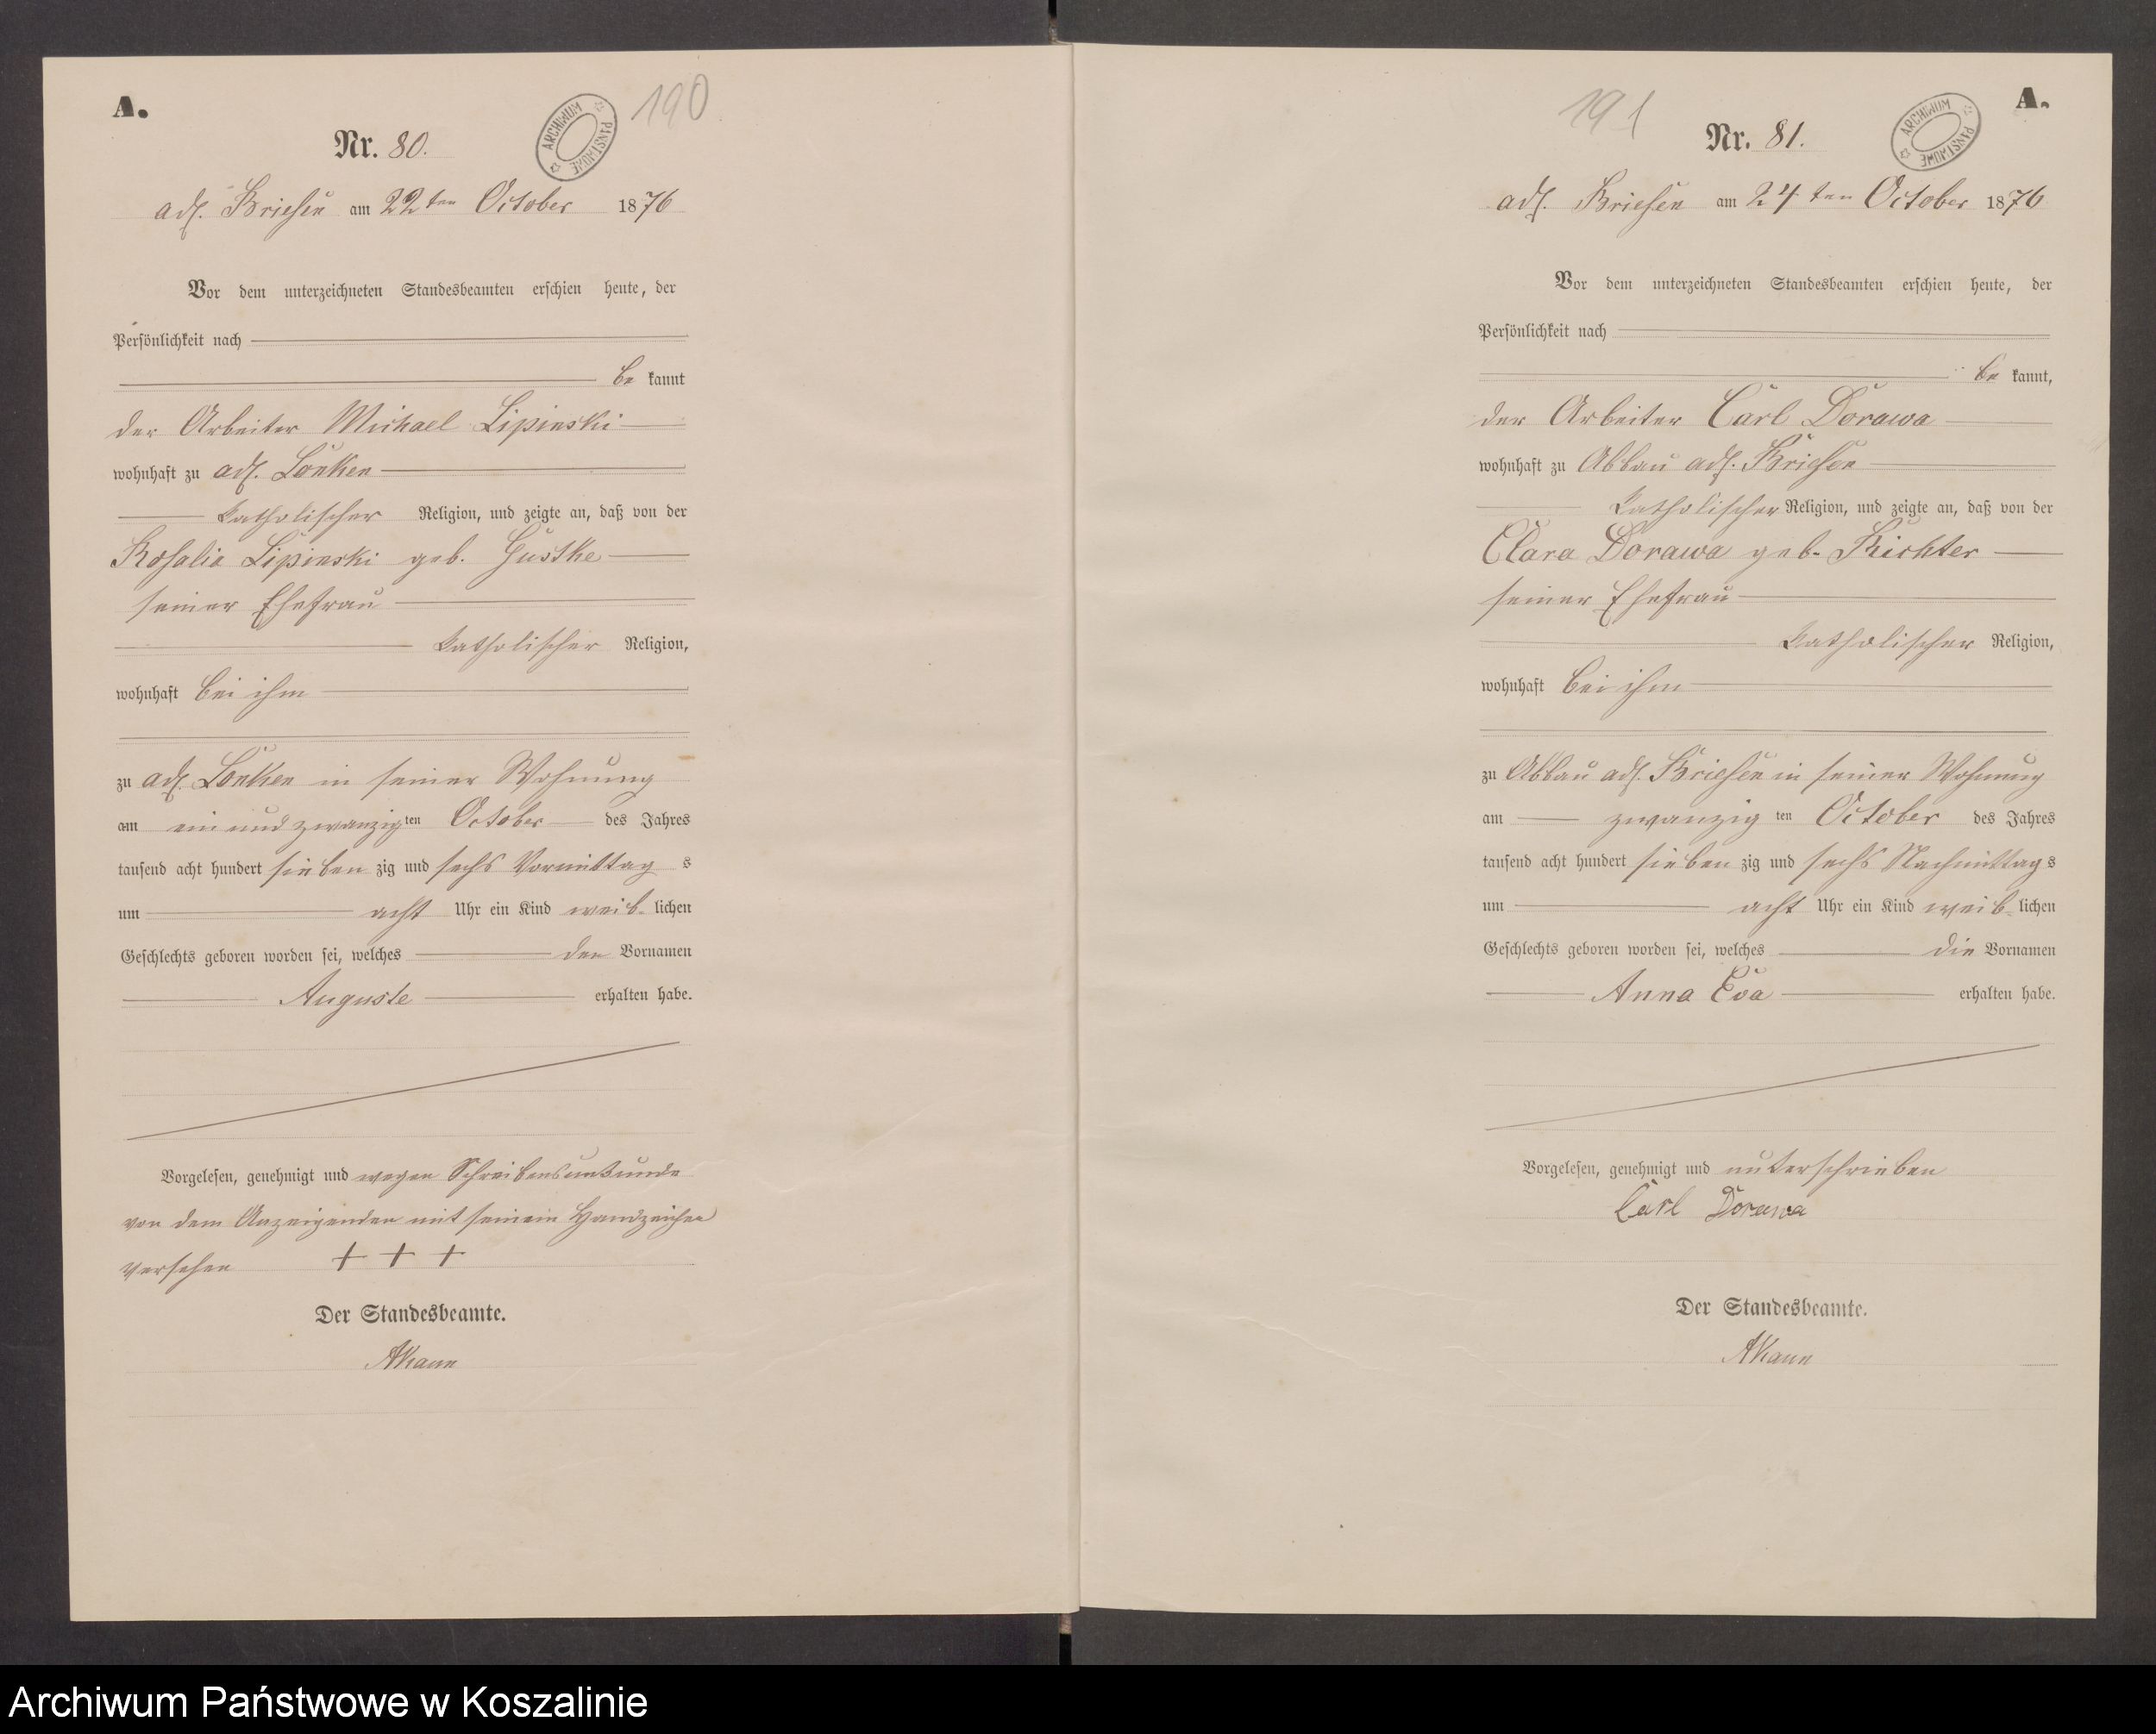 A.
190
Nr. 80.
ARCHIWUM PAŃSTWOWE
adl. Briesen am 22ten October 1876
Vor dem unterzeichneten Standesbeamten erschien heute, der
Persönlichkeit nach
be kannt
der Arbeiter Michael Lipinski
wohnhaft zu adl. Lonken
katholischer Religion, und zeigte an, daß von der
Rosalia Lipinski geb. Gustke
seiner Ehefrau
katholischer Religion,
wohnhaft bei ihm
zu adl. Lonken in seiner Wohnung
am ein und zwanzig ten October des Jahres
tausend acht hundert sieben zig und sechs Vormittag s
um acht Uhr ein Kind weib- lichen
Geschlechts geboren worden sei, welches den Vornamen
Auguste erhalten habe.
Vorgelesen, genehmigt und wegen Schreibensunkunde
von dem Anzeigenden mit seinem Handzeichen
versehen + + +
Der Standesbeamte.
AKann
191
A.
Nr. 81.
ARCHIWUM PAŃSTWOWE
adl. Briesen am 24ten October 1876
Vor dem unterzeichneten Standesbeamten erschien heute, der
Persönlichkeit nach
be kannt,
der Arbeiter Carl Dorawa
wohnhaft zu Abbau adl. Briesen
katholischer Religion, und zeigte an, daß von der
Clara Dorawa geb. Richter
seiner Ehefrau
katholischer Religion,
wohnhaft bei ihm
zu Abbau adl. Briesen in seiner Wohnung
am zwanzig ten October des Jahres
tausend acht hundert sieben zig und sechs Nachmittag s
um acht Uhr ein Kind weib- lichen
Geschlechts geboren worden sei, welches die Vornamen
Anna Eva erhalten habe.
Vorgelesen, genehmigt und unterschrieben
Carl Dorawa
Der Standesbeamte.
AKann
Archiwum Państwowe w Koszalinie